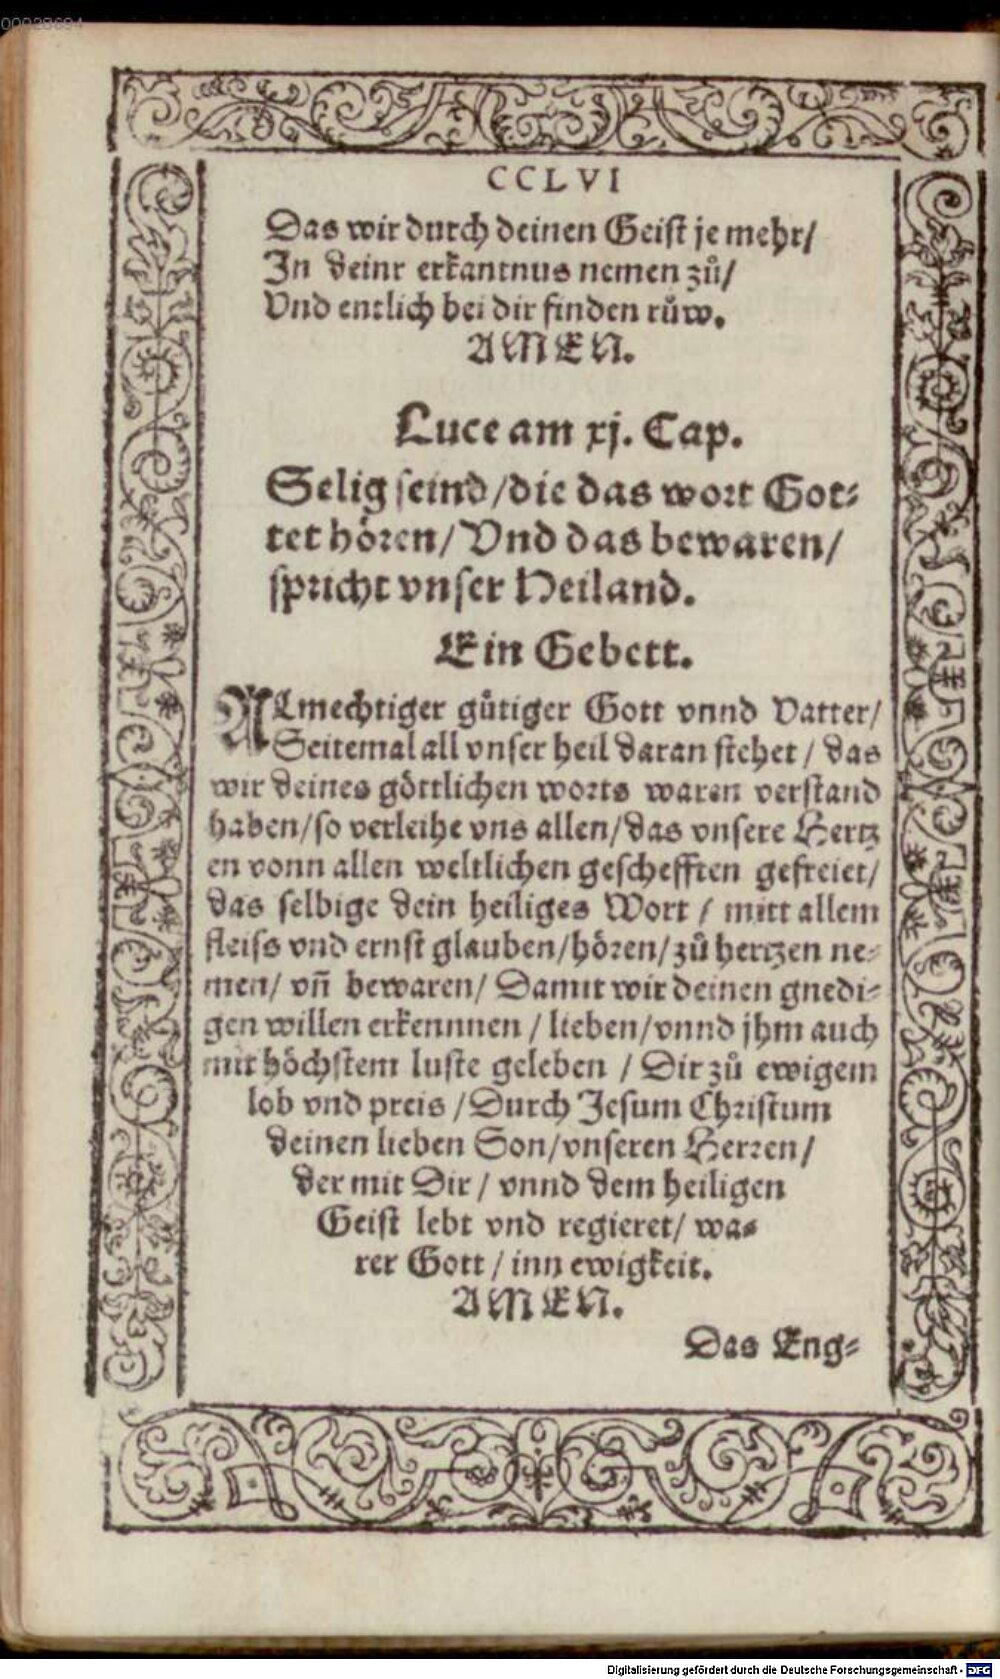 00028684
CCLVI
Das wir durch deinen Geist je mehr/
In deinr erkantnus nemen zů/
Vnd entlich bei dir finden růw.
AMEN.
Luce am xj. Cap.
Selig seind/die das wort Got⸗
tet hören/ Vnd das bewaren/
spricht vnser Heiland.
Ein Gebett.
ALmechtiger gůtiger Gott vnnd Vatter/
Seitemal all vnser heil daran stehet / das
wir deines göttlichen worts waren verstand
haben/so verleihe vns allen/das vnsere Hertz
en vonn allen weltlichen geschefften gefreiet/
das selbige dein heiliges Wort / mitt allem
fleiss vnd ernst glauben/hören/zů hertzen ne⸗
men/ vñ bewaren/ Damit wir deinen gnedi⸗
gen willen erkennnen / lieben/vnnd jhm auch
mit höchstem luste geleben / Dir zů ewigem
lob vnd preis /Durch Jesum Christum
deinen lieben Son/vnseren Herren/
der mit Dir/ vnnd dem heiligen
Geist lebt vnd regieret/ wa⸗
rer Gott / inn ewigkeit.
AMEN.
Das Eng⸗
Digitalisierung gefördert durch die Deutsche Forschungsgemeinschaft - DFG